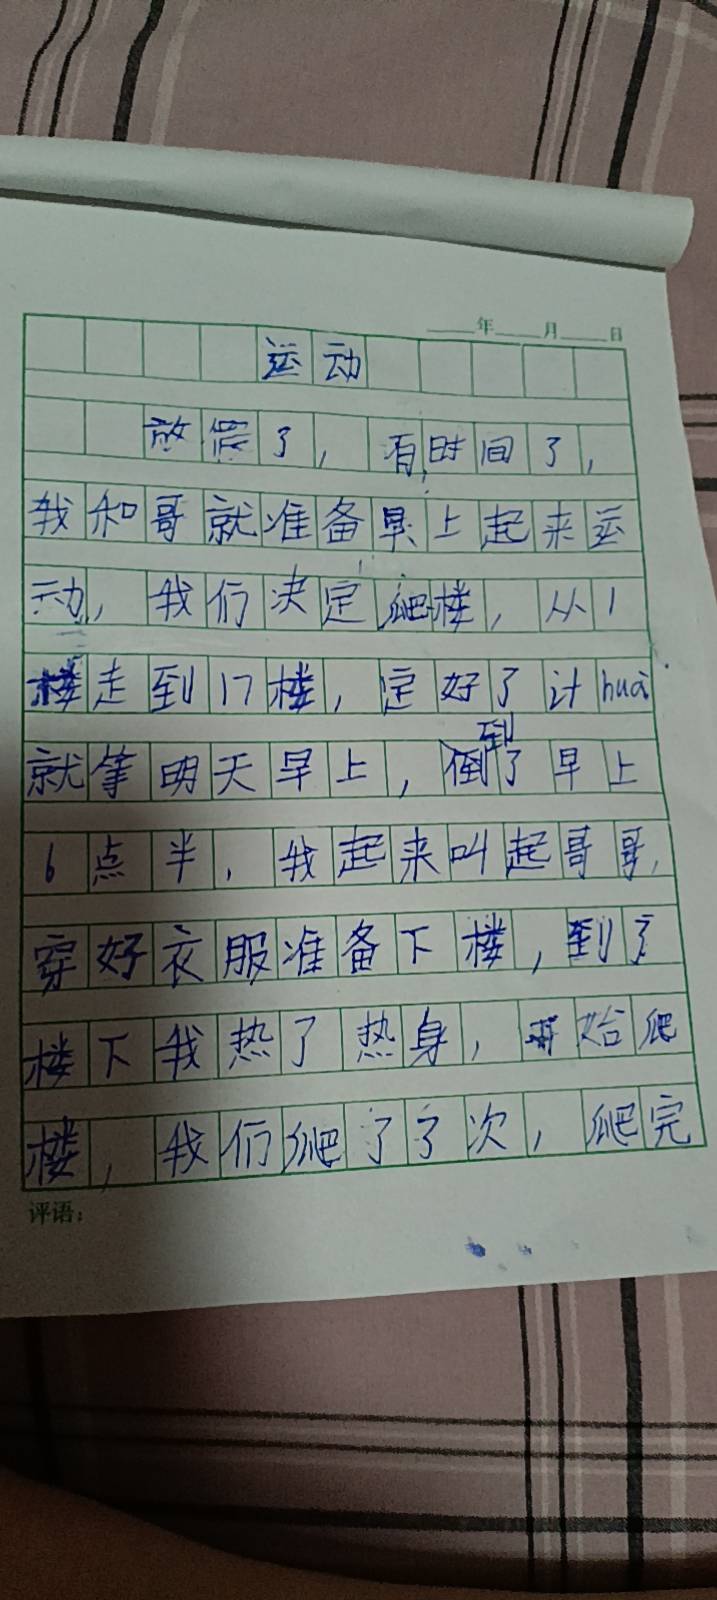 年 月 日
运动
放假了，有时间了，
我和哥就准备早上起来运
动，我们决定爬楼，从1
楼走到17楼，定好了计huà
就等明天早上，到了早上
6点半，我起来叫起哥哥，
穿好衣服准备下楼，到了
楼下我热了热身，开始爬
楼，我们爬了了次，爬完
评语：